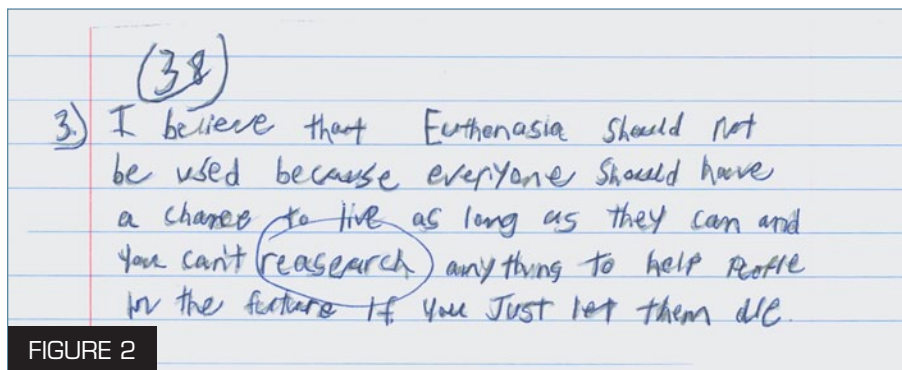 (38)
3.) I believe that Euthenasia should not
be used because everyone should have
a chance to live as long as they can and
you can't reasearch anything to help People
in the future If you Just let them die.
FIGURE 2